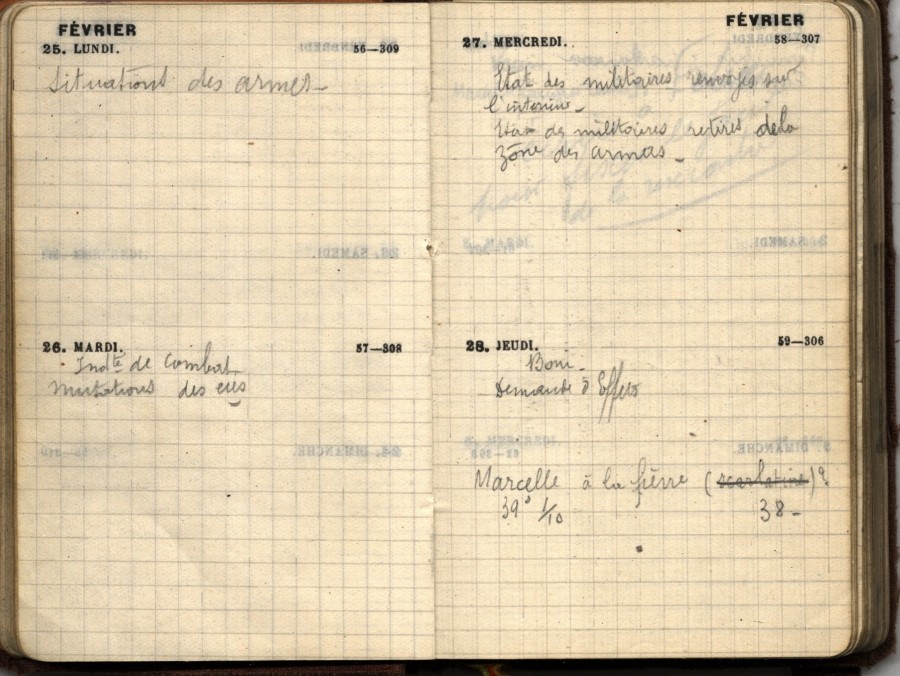 FÉVRIER
25. LUNDI. 56—309
Situations des armes -
26. MARDI. 57—308
Indté de Combat
Mutations des cies
FÉVRIER
27. MERCREDI. 58—307
Etat des militaires renvoyés sur
l'interieur -
Etat des militaires retires de la
zône des armees -
28. JEUDI. 59—306
Boni -
Demande d'Effets
Marcelle à la fièvre (scarlatine)?
39° 1/10 38 -